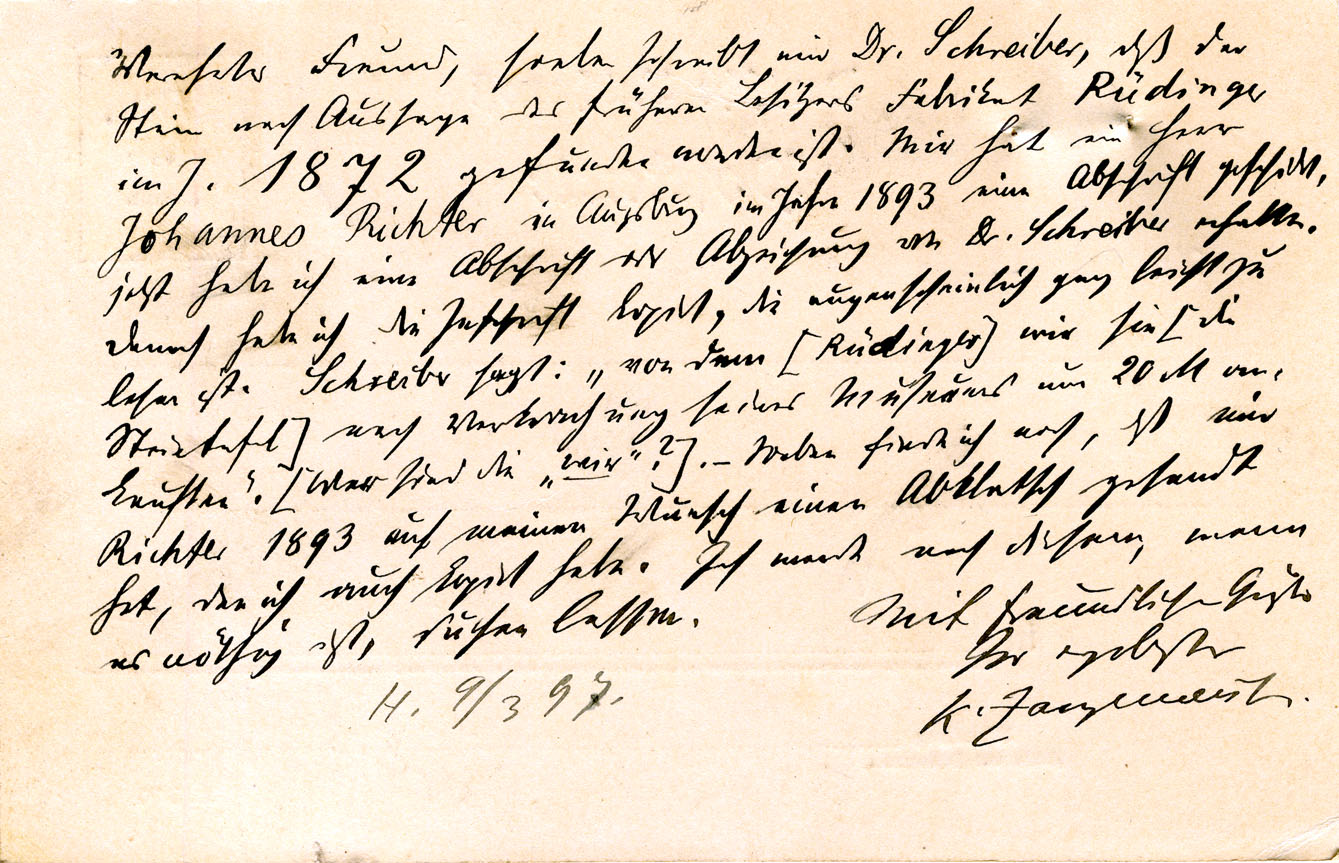 Verehrter Freund, soeben schreibt mir Dr. Schreiber, daß der
Stein nach Aussage des früheren Besitzers Fabrikant Rüdinger
im J. 1872 gefunden worden ist. Mir hat ein Herr
Johannes Richter in Augsburg im Jahre 1893 eine Abschrift geschickt,
jetzt habe ich eine Abschrift oder Abzeichnung von Dr. Schreiber erhalten.
Danach habe ich die Inschrift kopirt, die augenscheinlich ganz leicht zu
lesen ist. Schreiber sagt: „von dem [Rüdinger] wir sie [die
Steintafel] nach Verkrachung seines Museums um 20 M an-
kauften". [Wer sind die „wir"?]. – Soeben finde ich noch, daß mir
Richter 1893 auf meinen Wunsch einen Abklatsch gesandt
hat, den ich auch kopirt habe. Ich werde nach diesem, wenn
es nöthig ist, suchen lassen. Mit freundlichen Grüßen
Ihr ergebenster
H. 9/3 97. K. Zangemeister.